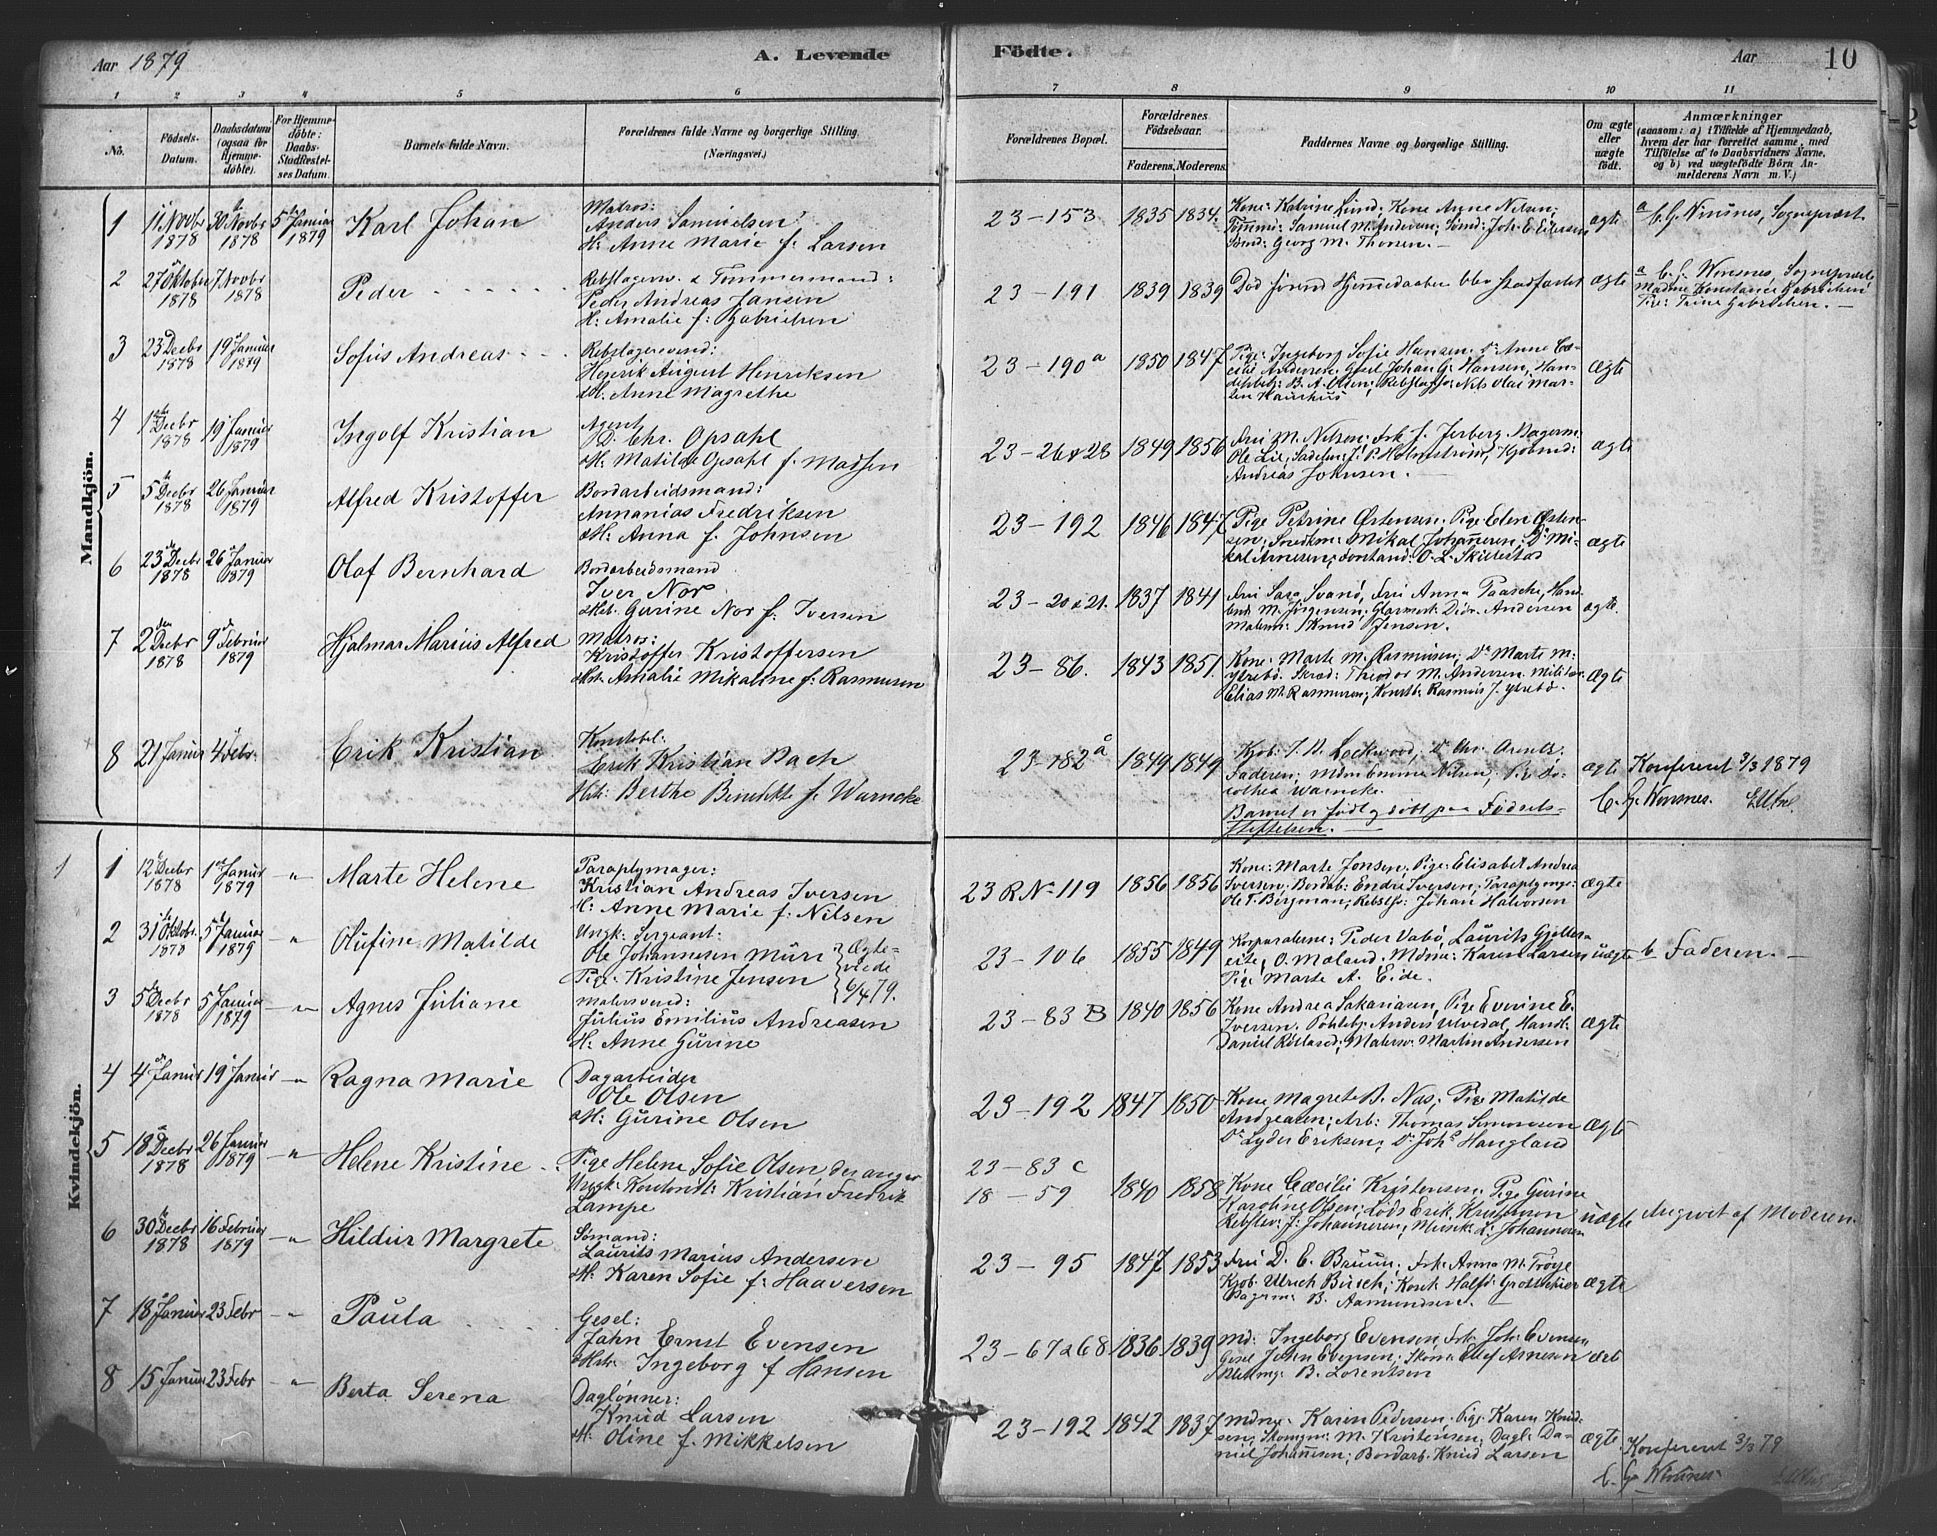 Aar 1879
A. Levende Födte.
Aar
10
1 2 3 4 5 6 7 8 9 10 11
No.
Födsels-Datum.
Daabsdatum (ogsaa for Hjemmedöbte).
For Hjemmedöbte: Daabs-Stadfæstelses Datum.
Barnets fulde Navn.
Forældrenes fulde Navne og borgerlige Stilling.
(Næringsvei.)
Forældrenes Bopæl.
Forældrenes Födselsaar.
Faderens. Moderens.
Faddernes Navne og borgerlige Stilling.
Om ægte eller uægte födt.
Anmærkninger
(saasom: a) i Tilfælde af Hjemmedaab, hvem der har forrettet samme, med Tilföielse af to Daabsvidners Navne, og b) ved uægtefödte Börn Anmelderens Navn m. V.)
Mandkjön.
1 11 Novbr 1878 30 Novbr 1878 5 Januar 1879 Karl Johan
Matros:
Anders Samuelsen
H. Anne Marie f. Larsen
23-153 1835 1834.
Kone: Katrine Lund; Kone Anne Nilsen;
Tömmm: Samuel M. Andersen; Sömd: Joh. E. Eilersen
Sömd: Georg M. Thorsen.
ægte
a C. G. Winsnes, Sognepræst
2 27 Oktober 1878 7 Novbr 1878 Peder
Rebslagersv. & Tömmermand:
Peder Andreas Jansen
H. Amalie f. Gabrielsen
23-191 1839 1839
Död förend Hjemmedaaben blev stadfæstet
ægte
a C. G. Winsnes, Sognepræst
Madme Konstance Gabrielsen
Pige: Trine Gabrielsen.
3 23 Decbr 1878 19 Januar 1879 Sofus Andreas
Rebslagersvend:
Henrik August Henriksen
H. Anne Magrethe
23-190 a 1850 1847
Pige: Ingeborg Sofie Hansen; Do Anne Cæ-
cilie Andersen; Gesel Johan G. Hansen; Han-
delsbetj: B. A. Olsen; Rebslagers: Nils Olai Mar-
ægte
4 1ste Decbr 1878 19 Januar 1879 Ingolf Kristian
Agent
D. Chr. Opsahl
H. Matilde Opsahl f. Madsen
23-26 & 28 1849 1856
Fru M. Nilsen; Frk f. Jerberg. Bagerm:
Ole Lie, Sadelm: J. P. Holmström, Kjöbmd:
Andreas Johnsen.
ægte
5 5 Decbr 1878 26 Januar 1879 Alfred Kristoffer
Bordarbeidsmand:
Annanias Fredriksen
H. Anna f. Johnsen
23-192 1846 1847
Pige Petrine Östensen; Pige Elen Östen-
sen; Snedkm: Mikal Johannesen; Do Mi-
kal Arnesen; Forstand: O. L. Skillestad
ægte
6 23 Decbr 1878 26 Januar 1879 Olaf Bernhard
Bordarbeidsmand
Iver Nor
Hst. Gurine Nor f. Iversen
23-20 & 21. 1837 1841
Fru Sara Svanö, Fru Anna Paasche, Han-
M. Jörgensen; Glarmest: Didr. Andersen
Malerm: Knud Jensen.
ægte
7 2 Decbr 1878 9 Februar 1879 Hjalmar Marius Alfred
Matros:
Kristoffer Kristoffersen
Hst. Amalie Mikaline f. Rasmusen
23-86. 1843 1851.
Kone: Marte M. Rasmusen; Do Marte M.
Ytrebö. Skræd: Theodor M. Andersen. Militær:
Elias M. Rasmusen; Konstb: Rasmus J. Ytrebö.
ægte
8 21 Januar 4 Febr. Erik Kristian
Konstabel:
Erik Kristian Bach
Hst: Berthe Benedikte f. Warncke
23-182 a 1849 1849
Kjöb: T. D. Lockwood; Do Chr. Arentz.
Faderen; Mdm Emma Nilsen; Pige Do-
rothea Warncke.
Barnet er födt og döbt paa Födsels-
stiftelsen.
ægte
Konfereret 3/3 1879
C. G. Winsnes.
Kvindekjön.
1 12 Decbr 1878 1 Januar 1879 " Marte Helene
Paraplymager:
Kristian Andreas Iversen
H. Anne Marie f. Nilsen
23 R No 119 1856 1856
Kone: Marte Jonsen; Pige: Elisabet Andrea
Iversen; Bordab: Endre Iversen; Paraplym:
Ole T. Bergman; Rebslsv: Johan Halvorsen
ægte
2 31 Oktobr. 1878 5 Januar 1879 " Olufine Matilde
Ungk: Sergeant:
Ole Johannesen Muri
Pige: Kristine Jensen
Ægteviede 6/4 79.
23-106 1855 1849
Korporalerne: Peder Vabö, Laurits Gjelle-
O. Moland. Mdme: Karen Larsen
Pige Marte A. Eide.
uægte
b Faderen.
3 5 Decbr 1878 5 Januar 1879 " Agnes Juliane
Malersvend:
Julius Emilius Andreasen
H. Anne Gurine
23-83 B 1840 1856
Kone Andrea Sakariasen, Pige Everine E.
Iversen. Politibj: Anders Ulvedal, Handl:
Daniel Röeland; Malersv: Martin Andersen
ægte
4 4 Januar 19 Januar " Ragna Marie
Dagarbeider
Ole Olsen
H. Gurine Olsen
23-192 1847 1850
Kone Magrete B. Nas; Pige Matilde
Andreasen; Arb: Thomas Simonsen
Do Lyder Eriksen; Do Johs Haugland
ægte
5 18 Decbr 1878 26 Januar 1879 " Helene Kristine
Pige Helene Sofie Olsen der anger
Ungk: Kristian Fredrik
Lampe
23-83 c
18-59 1840 1858
Kone Cæcilie Kristensen; Pige Gurine
Karoline Olsen; Lods Erik Kristenson
Rebslsv: J. Johannesen; Musik L. Johannesen
uægte
Angivet af Moderen.
6 30 Decbr 1878 16 Februar 1879 " Hildur Margrete
Sömand:
Laurits Marius Andersen
H. Karen Sofie f. Haaversen
23-95 1847 1853
Fru D. E. Bauun; Frk: Anna M. Tröye
Kjöb: Ulrich Busch; Kont: Halfd: Grotthier
Bagerm: B. Aamundsen.
ægte
7 18 Januar 23 Febr " Paula
Gesel:
John Ernst Evensen
Hst: Ingeborg f. Hansen
23-67 & 68 1836 1839
Md: Ingeborg Evensen, Frk. Joh: Evensen
Gesel John Evensen; Skom: Ellef Arneson
B. Lorentsen
ægt
8 15 Januar 23 Febr " Berta Serena
Daglönner:
Knud Larsen
H. Oline f. Mikkelsen
23-192 1842 1837
Mdme: Karen Pedersen; Pige Karen Knud-
sen; Skomgm: M. Kristensen; Dagl: Da-
niel Johannesen; Bordarb. Knud Larsen
ægte
Konfereret 3/3 79
C. G. Winsnes